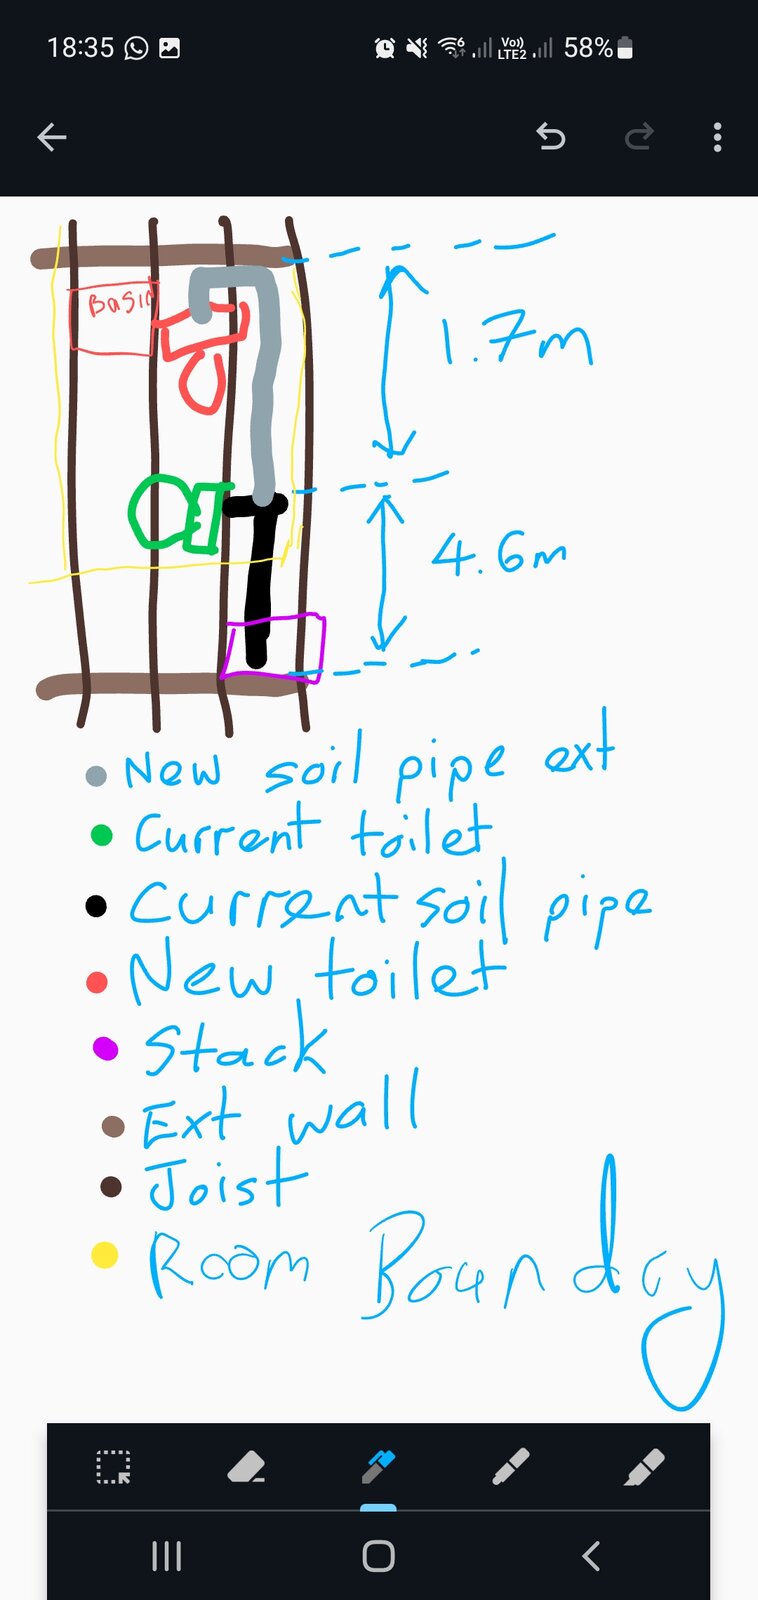 18:35
Vo))
LTE2
6
58%
Basin
1.7m
4.6m
New soil pipe ext
Current toilet
Current soil pipe
New toilet
Stack
Ext wall
Joist
Room Boundry